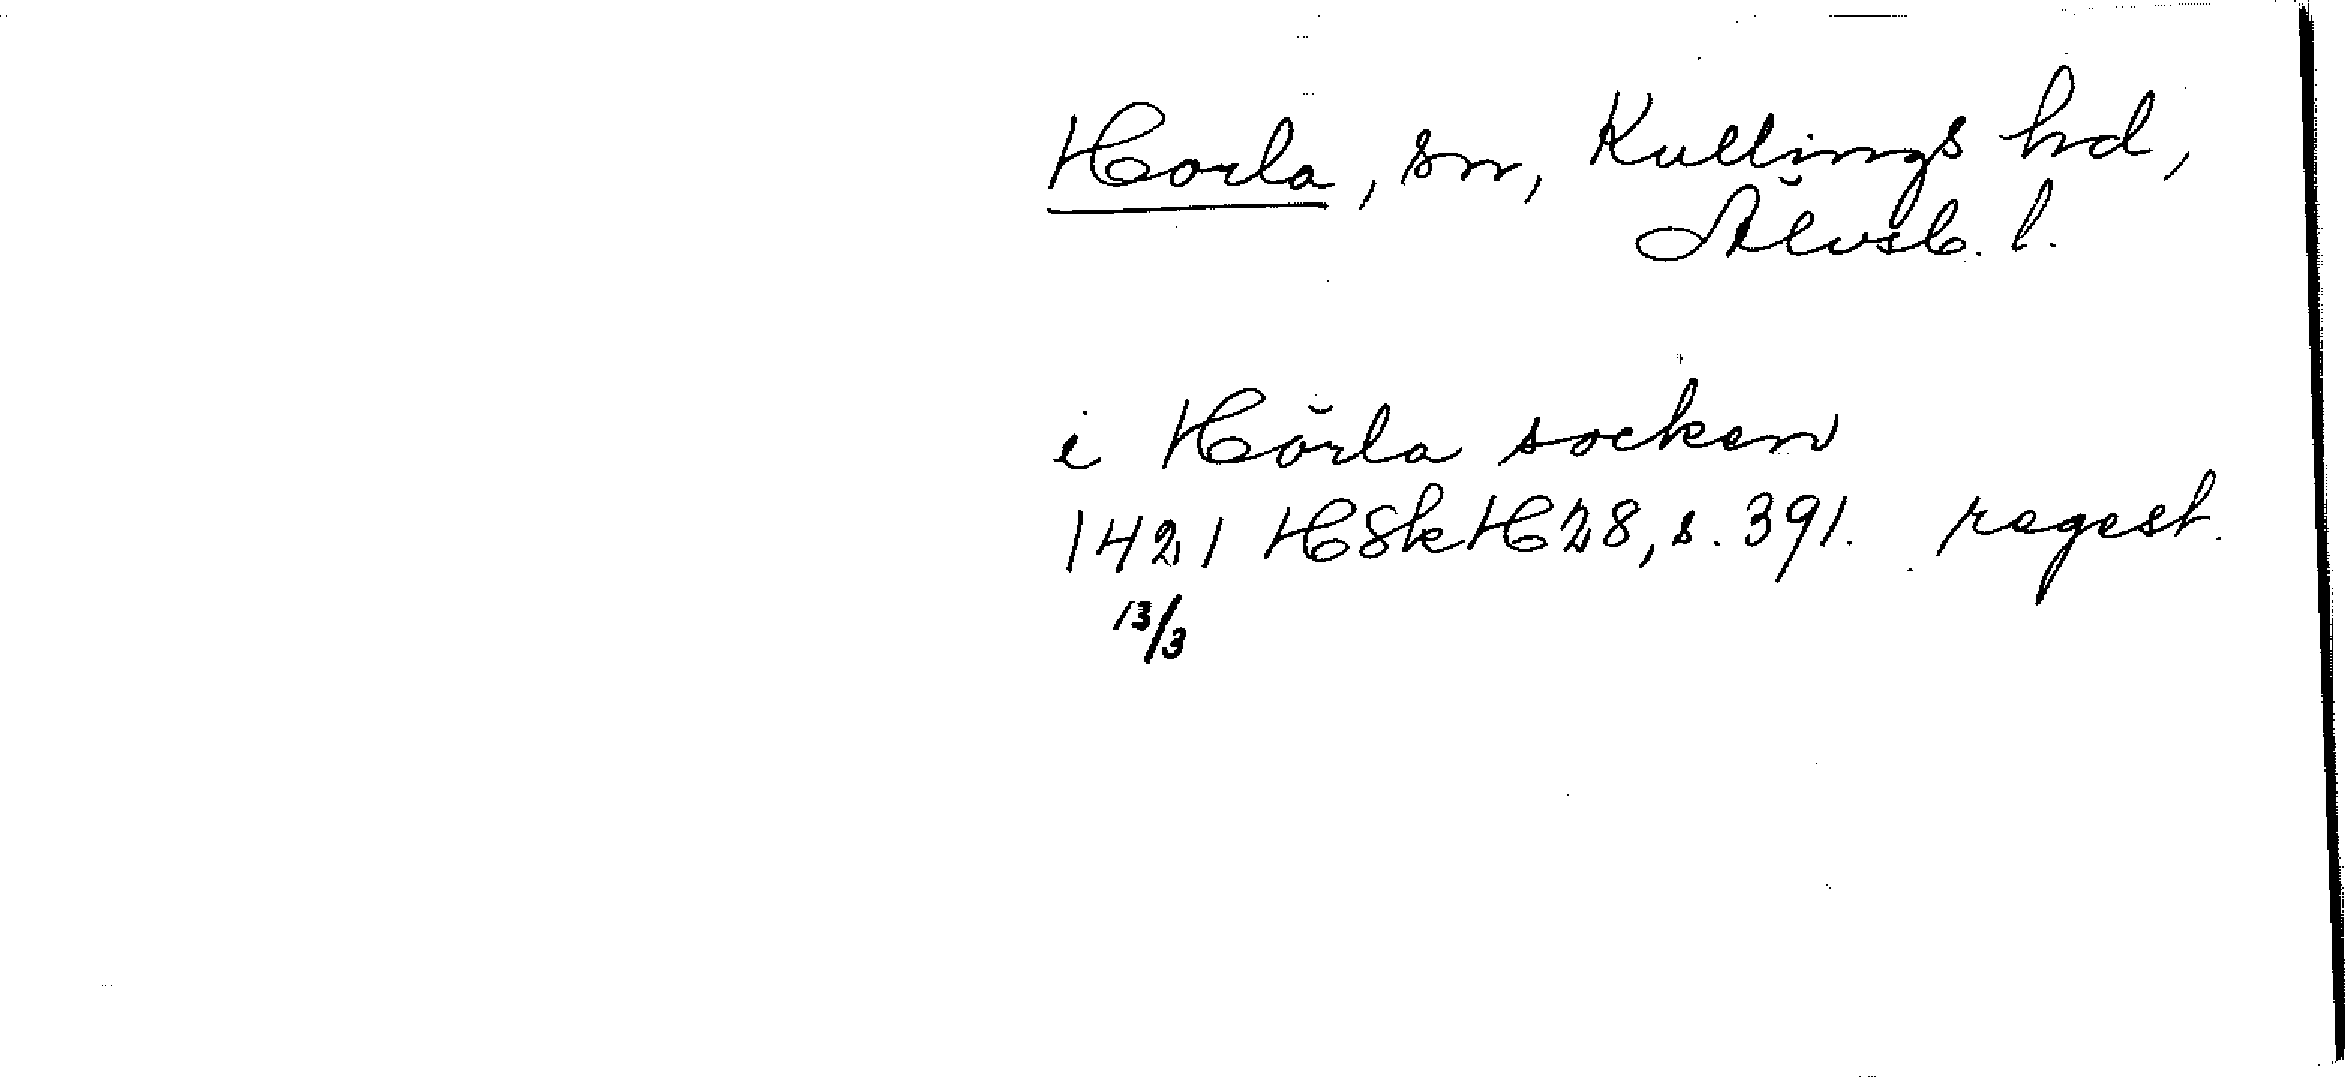 Horla, sn, Kullings hd,
Älvsb. l.
i Hörla socken
1421 HSkH28, s. 391. regest.
13/3